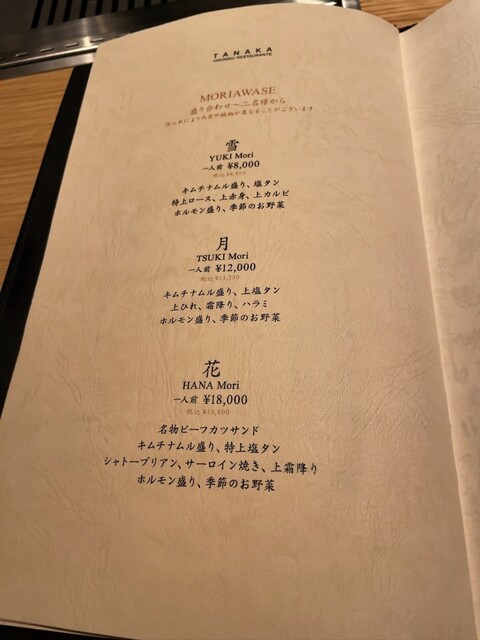 TANAKA
YAKINIKU RESTAURANTE
MORIAWASE
盛り合わせ〜二名様から
仕入れにより内容や銘柄が異なることがございます
雪
YUKI Mori
一人前 ¥8,000
税込 ¥8,800
キムチナムル盛り、塩タン
特上ロース、上赤身、上カルビ
ホルモン盛り、季節のお野菜
月
TSUKI Mori
一人前 ¥12,000
税込 ¥13,200
キムチナムル盛り、上塩タン
上ひれ、霜降り、ハラミ
ホルモン盛り、季節のお野菜
花
HANA Mori
一人前 ¥18,000
税込 ¥19,800
名物ビーフカツサンド
キムチナムル盛り、特上塩タン
シャトーブリアン、サーロイン焼き、上霜降り
ホルモン盛り、季節のお野菜